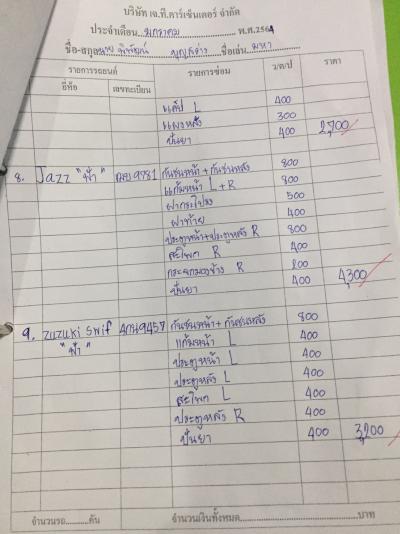 บริษัท เจ.ที.คาร์เซ็นเตอร์ จำกัด
ประจำเดือน มกราคม พ.ศ.2564
ชื่อ-สกุล นาย ชื่อเล่น มหา
รายการรถยนต์ รายการซ่อม ว/ด/ป ราคา
ยี่ห้อ เลขทะเบียน
แค็ป L 400
แผงหลัง 300
ปั่นยา 400 2,700
8. Jazz "ฟ้า" 9781 กันชนหน้า + กันชนหลัง 800
แก้มหน้า L + R 800
ฝากระโปรง 500
ฝาท้าย 400
ประตูหน้า+ประตูหลัง R 800
สะโพก R 400
กระจกมองข้าง R 200
ปั่นยา 400 4,300
9. Zuzuki Swif 4กน9457 กันชนหน้า + กันชนหลัง 800
"ฟ้า" แก้มหน้า L 400
ประตูหน้า L 400
ประตูหลัง L 400
สะโพก L 400
ประตูหลัง R 400
ปั่นยา 400 3,200
จำนวนรถ..........คัน จำนวนเงินทั้งหมด..........บาท